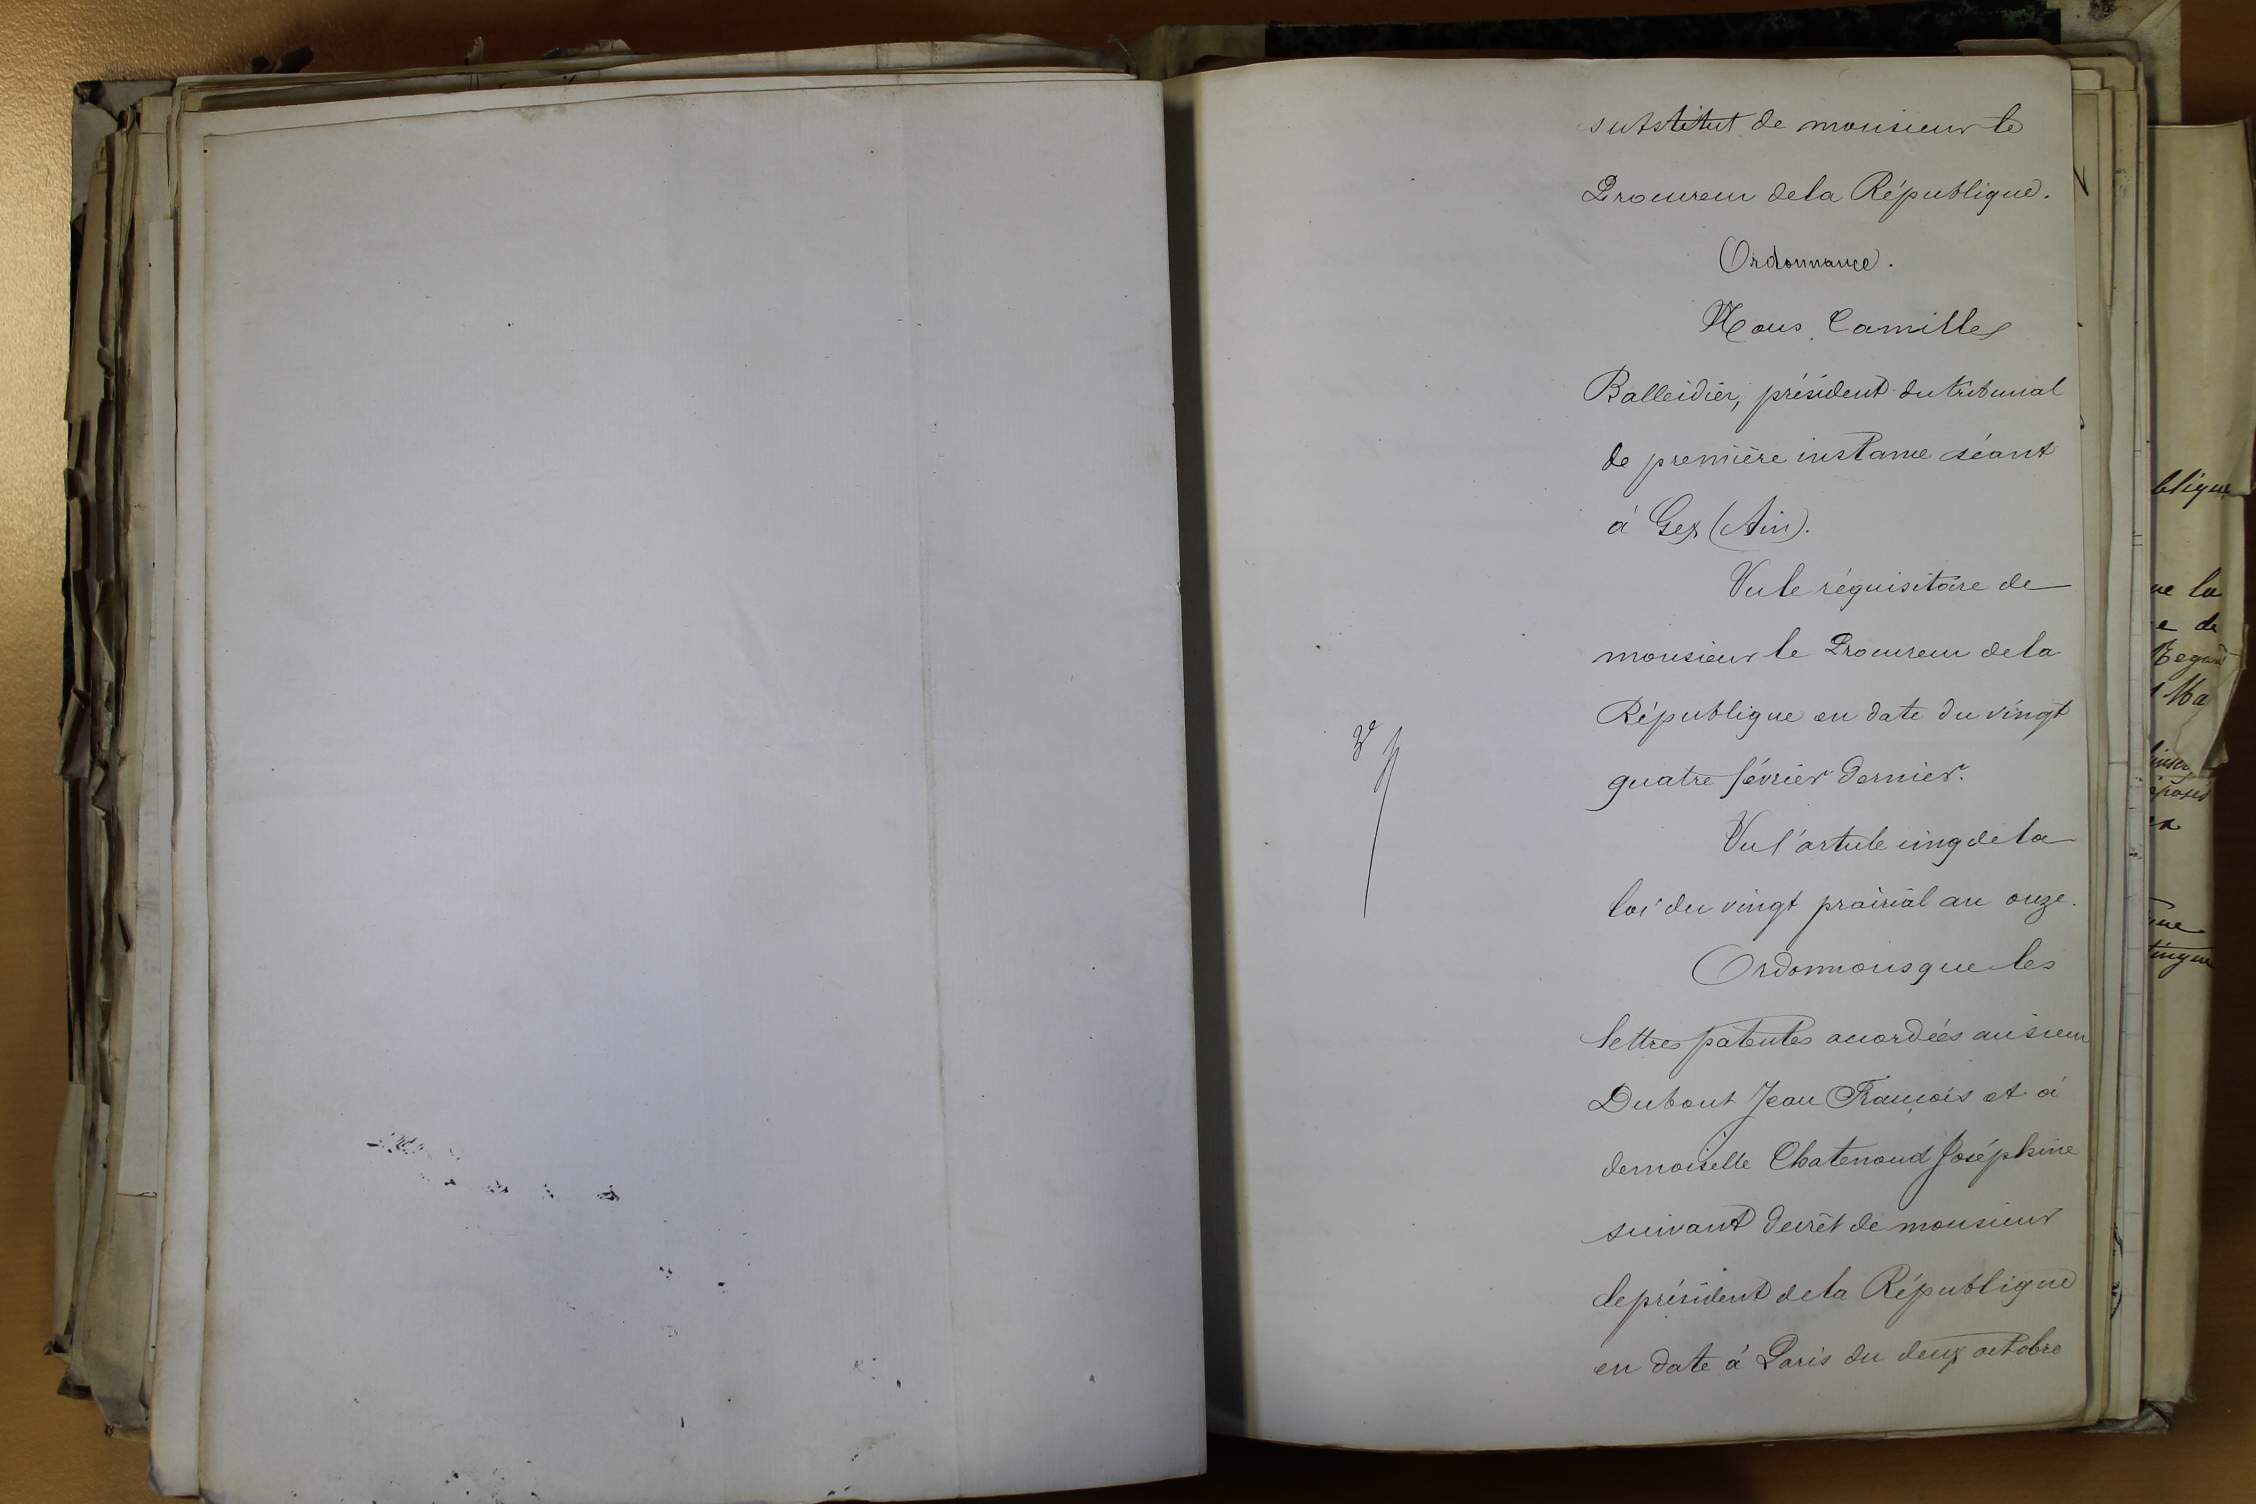 substitut de monsieur le
Procureur de la République.
Ordonnance.
Nous Camille
Balleidier, président du tribunal
de première instance séant
à Gex (Ain).
Vu le réquisitoire de
monsieur le Procureur de la
République en date du vingt
quatre février dernier.
Vu l'article cinq de la
loi du vingt prairial an onze.
Ordonnons que les
lettres patentes accordées au sieur
Dubout Jean François et à
demoiselle Chatenoud Joséphine
suivant décrêt de monsieur
le président de la République
en date à Paris du deux octobre
3e
blique
ue la
e de